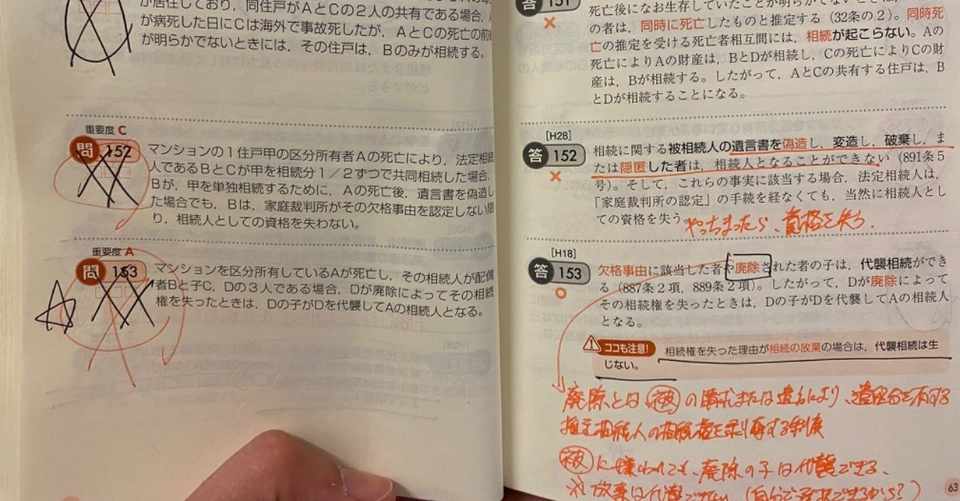 が居住しており、同住戸がAとCの2人の共有である場合、
が病死した日にCは海外で事故死したが、AとCの死亡の前
が明らかでないときには、その住戸は、Bのみが相続する。
重要度 C
問 152
マンションの1住戸甲の区分所有者Aの死亡により、法定相
人であるBとCが甲を相続分1/2ずつで共同相続した場合
Bが、甲を単独相続するために、Aの死後、遺言書を偽造し
た場合でも、Bは、家庭裁判所がその欠格事由を認定しない
り、相続人としての資格を失わない。
重要度 A
問 153
マンションを区分所有しているAが死亡し、その相続人が配偶
者Bと子C、Dの3人である場合、Dが廃除によってその相続
権を失ったときは、Dの子がDを代襲してAの相続人となる。
答 151
×
死亡後になお生存していたことが明らかでないとき
の者は、同時に死亡したものと推定する(32条の2)。同時死
亡の推定を受ける死亡者相互間には、相続が起こらない。Aの
死亡によりAの財産は、BとDが相続し、Cの死亡によりCの財
産は、Bが相続する。したがって、AとCの共有する住戸は、B
とDが相続することになる。
[H28]
答 152
×
相続に関する被相続人の遺言書を偽造し、変造し、破棄し、ま
たは隠匿した者は、相続人となることができない(891条5
号)。そして、これらの事実に該当する場合、法定相続人は、
「家庭裁判所の認定」の手続を経なくても、当然に相続人とし
ての資格を失う。
やっちまったら、資格を失う。
[H18]
答 153
○
欠格事由に該当した者や廃除された者の子は、代襲相続ができ
る(887条2項、889条2項)。したがって、Dが廃除によって
その相続権を失ったときは、Dの子がDを代襲してAの相続人
となる。
ココも注意!
相続権を失った理由が相続の放棄の場合は、代襲相続は生
じない。
廃除とは 被 の請求または遺言により、遺留分を有する
推定相続人の相続権を剥奪する制度
被 に嫌われても、廃除の子は代襲できる、
放棄は代襲できない
63